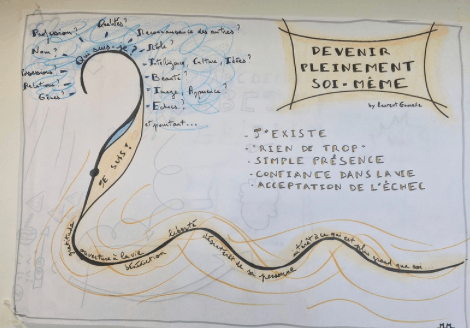 Profession?
Qualités?
Reconnaissance des autres?
Nom?
Qui suis-je?
Rôle?
Possessions
Intelligence, Culture, Idées?
Relations
Beauté?
Gènes?
Image, Apparence?
Echecs?
et pourtant...
DEVENIR
PLEINEMENT
SOI-MÊME
by Laurent
- J'EXISTE
- "RIEN DE TROP"
- SIMPLE PRÉSENCE
- CONFIANCE DANS LA VIE
- ACCEPTATION DE L'ÉCHEC
JE SUIS!
gratitude
ouverture à la vie
bénédiction
liberté
de son personnage
à ce qui est plus grand que soi